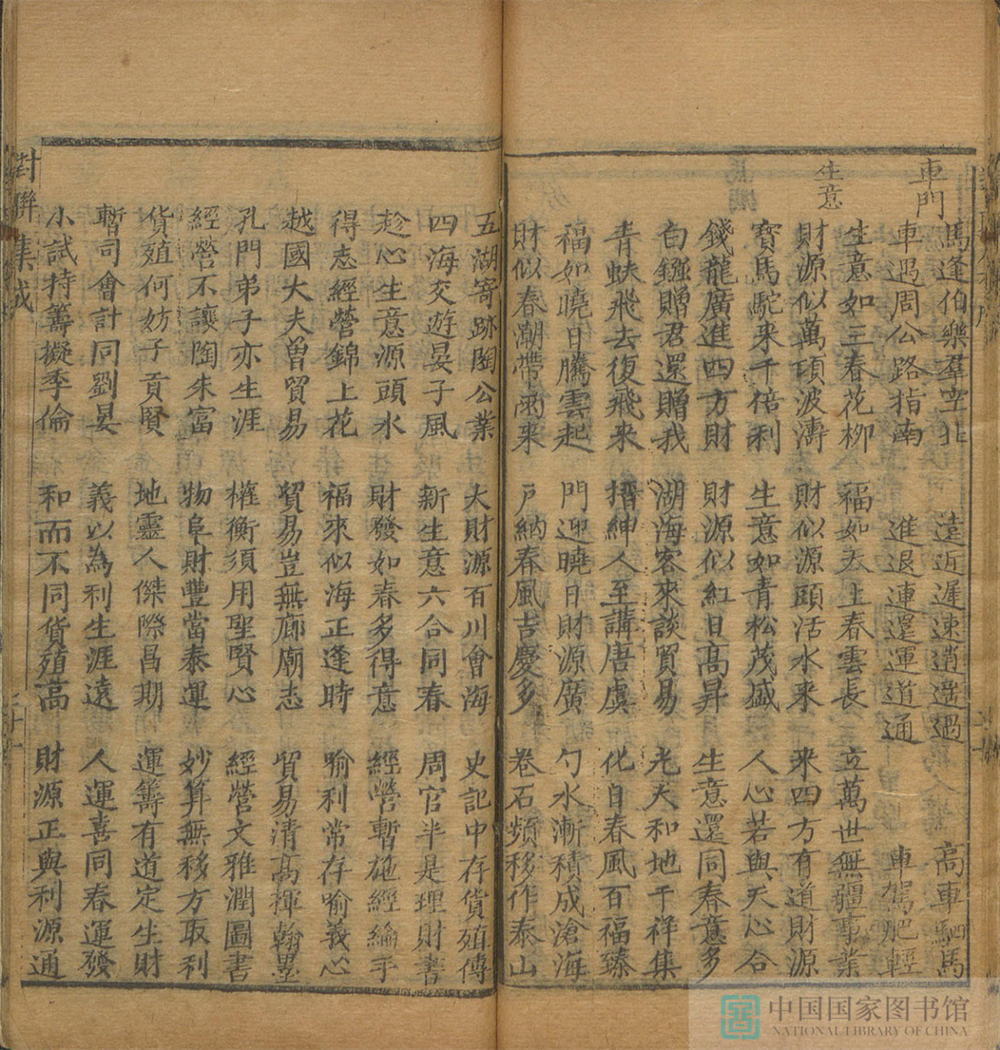 車門
馬逢伯樂羣空北 遠近遲速逍遥過 高車駟馬
車過周公路指南 進退連還運道通 車駕肥輕
生意
生意如三春花柳 福如天上春雲長 立萬世無疆事業
財源似萬頃波濤 財似源頭活水來 來四方有道財源
寳馬駝來千倍利 生意如青松茂盛 人心若與天心合
錢龍廣進四方財 財源似紅日高昇 生意還同春意多
白鏹贈君還贈我 湖海客來談貿易 光天和地千祥集
青蚨飛去復飛來 搢紳人至講唐虞 化日春風百福臻
福如曉日騰雲起 門迎曉日財源廣 勺水漸積成滄海
財似春潮帶雨來 戸納春風吉慶多 卷石頻移作泰山
五湖寄跡陶公業 大財源百川會海 史記中存貨殖傳
四海交遊晏子風 新生意六合同春 周官半是理財書
趁心生意源頭水 財發如春多得意 經營暫施經綸手
得志經營錦上花 福來似海正逢時 喻利常存喻義心
越國大夫曾貿易 貿易豈無廊廟志 貿易清高揮翰墨
孔門弟子亦生涯 權衡須用聖賢心 經營文雅潤圖書
經營不讓陶朱富 物阜財豐當泰運 妙算無移方取利
貨殖何妨子貢賢 地靈人傑際昌期 運籌有道定生財
暫司會計同劉晏 義以為利生涯遠 人運喜同春運發
小試持籌擬季倫 和而不同貨殖高 財源正與利源通
對聯集成
中国国家图书馆
NATIONAL LIBRARY OF CHINA